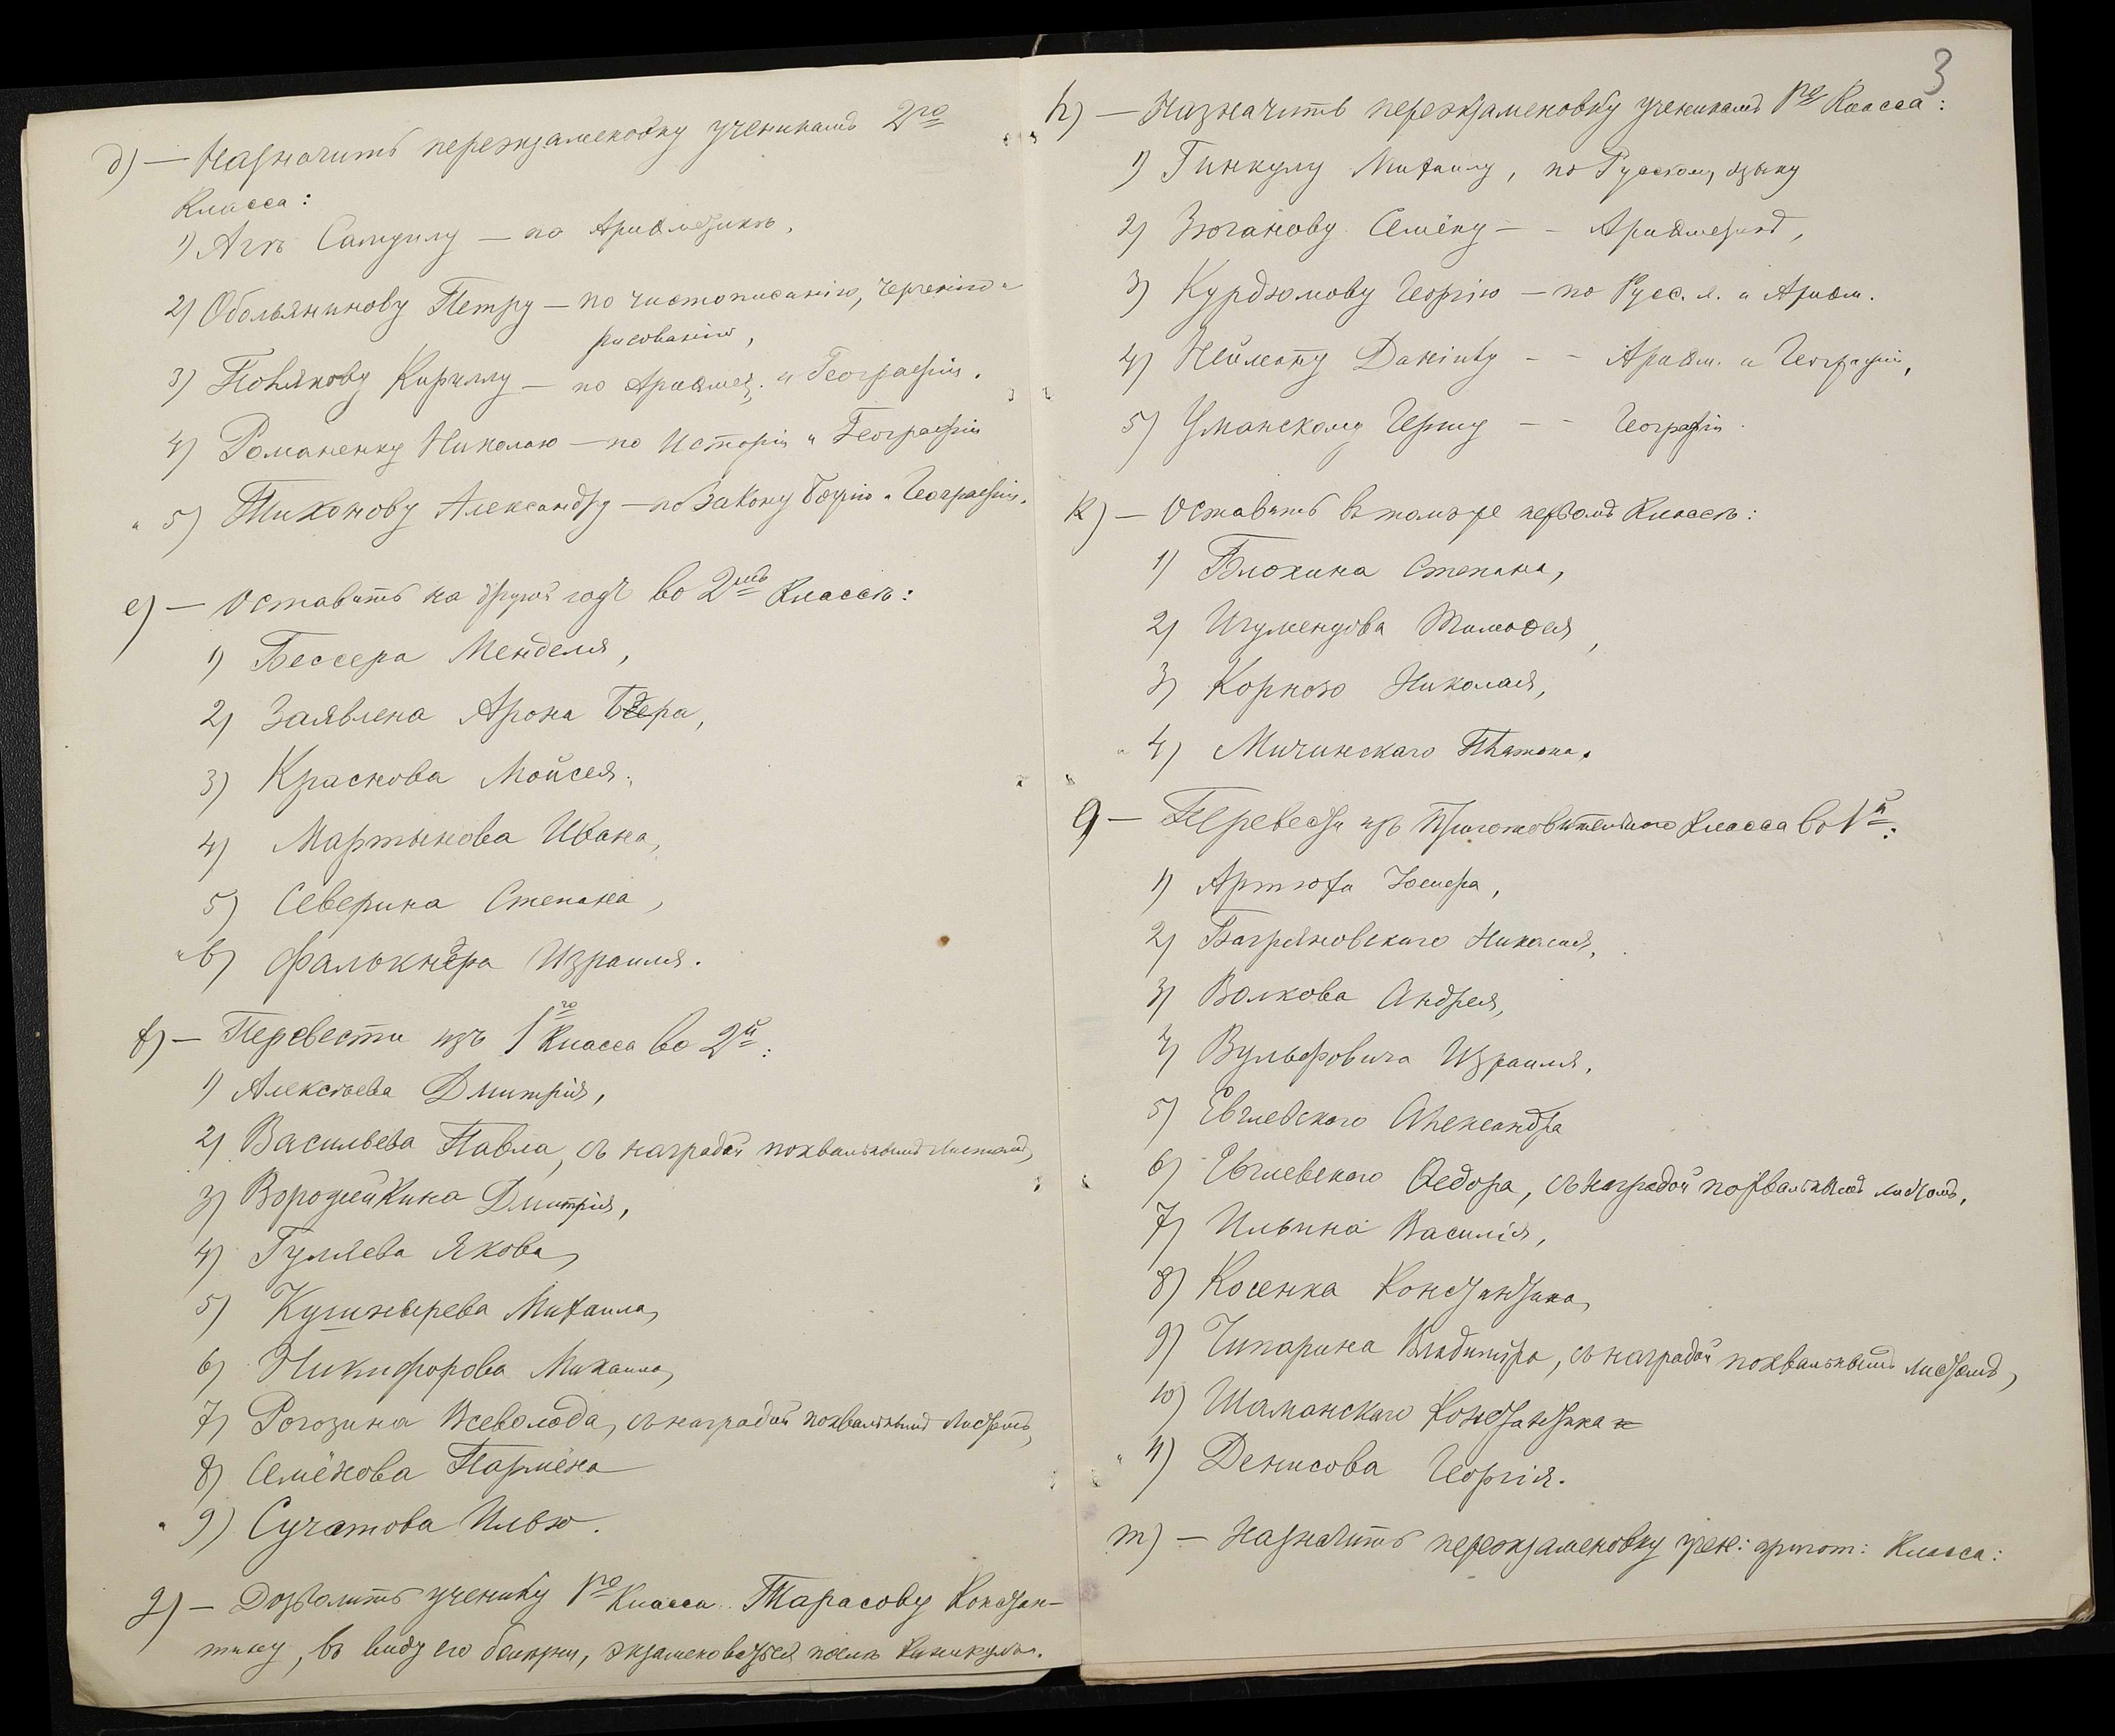 д) — Назначить переэкзаменовку ученикамъ 2го
Класса:
1) Аго Самуилу — по Ариѳметикѣ,
2) Обольянинову Петру — по чистописанію, черченію и
рисованію,
3) Полякову Кириллу — по Ариѳмет. и Географіи.
4) Романенку Николаю — по Исторіи и Географіи
и 5) Тихонову Александру — по Закону Божію и Географіи.
е) — Оставить на другой годъ во 2мъ Классѣ:
1) Бессера Менделя,
2) Заявлена Арона Бера,
3) Краснова Мойсея,
4) Мартынова Ивана,
5) Северина Степана,
и 6) Фалькнера Израиля.
f) — Перевести изъ 1го Класса во 2й:
1) Алексѣева Дмитрія,
2) Васильева Павла, съ наградой похвальнымъ листомъ,
3) Воро Дмитрія,
4) Гуляева Якова,
5) Кушнырева Михаила,
6) Никифорова Михаила,
7) Рогозина Всеволода, съ наградой похвальнымъ листомъ,
8) Семёнова Пармёна
и 9) Сучатова Илью.
g) — Дозволить ученику 1го Класса Тарасову Констан-
тину, въ виду его болѣзни, экзаменоваться послѣ каникулъ.
3
h) — Назначить переэкзаменовку ученикамъ 1го Класса:
1) Гинкулу Михаилу, по Русскому языку
2) Зюганову Семёну — – Ариѳметикѣ,
3) Курдюмову Георгію — по Русс. я. и Ариѳм.
4) Нейману Даніилу – – Ариѳм. и Географіи,
5) Уманскому Гершу – – Географіи.
к) — Оставить въ томъ же первомъ Классѣ:
1) Блохина Степана,
2) Игуменцова Тимоѳея,
3) Корного Николая,
и 4) Мичинскаго Платона.
q — Перевести изъ Приготовительнаго Класса въ 1й:
1) Артюха
2) Багряновскаго Николая,
3) Волкова Андрея,
4) Вульфовича Израиля,
5) Евчевскаго Александра
6) Евчевскаго Ѳедора, съ наградой похвальнымъ листомъ,
7) Ильина Василія,
8) Косенка Константина,
9) Чипарина Владиміра, съ наградой похвальнымъ листомъ,
10) Шаманскаго Константина и
и 11) Денисова Георгія.
m) — Назначить переэкзаменовку учен: пригот: Класса: